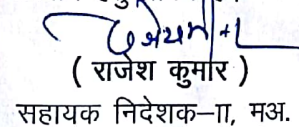 ( राजेश कुमार )
सहायक निदेशक–II, मअ.